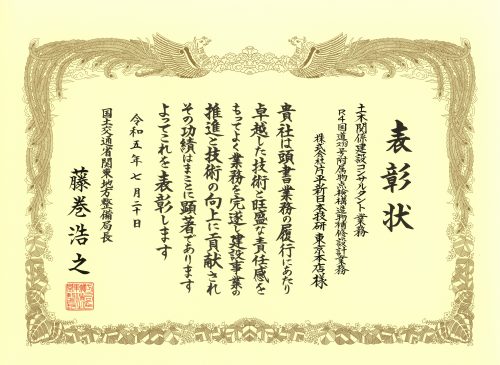 表彰状
土木関係建設コンサルタント業務
株式会社片平新日本技研 東京本店 様
貴社は頭書業務の履行にあたり
卓越した技術と旺盛な責任感を
もってよく業務を完遂し建設事業の
推進と技術の向上に貢献され
その功績はまことに顕著であります
よってこれを表彰します
令和五年七月二十日
国土交通省関東地方整備局長
藤巻浩之